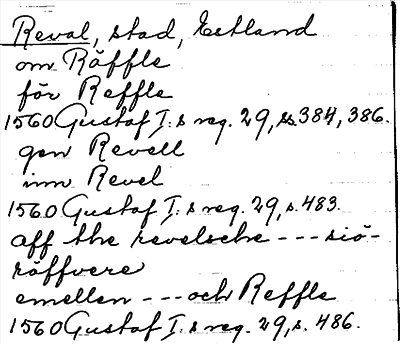 Reval, stad, Estland
om Räffle
för Reffle
1560 Gustaf I:s reg. 29, ss. 384, 386.
gen Revell
inn Revel
1560 Gustaf I:s reg. 29, s. 483.
aff the revelsche --- siö-
räffvere
emellen --- och Reffle
1560 Gustaf I:s reg. 29, s. 486.